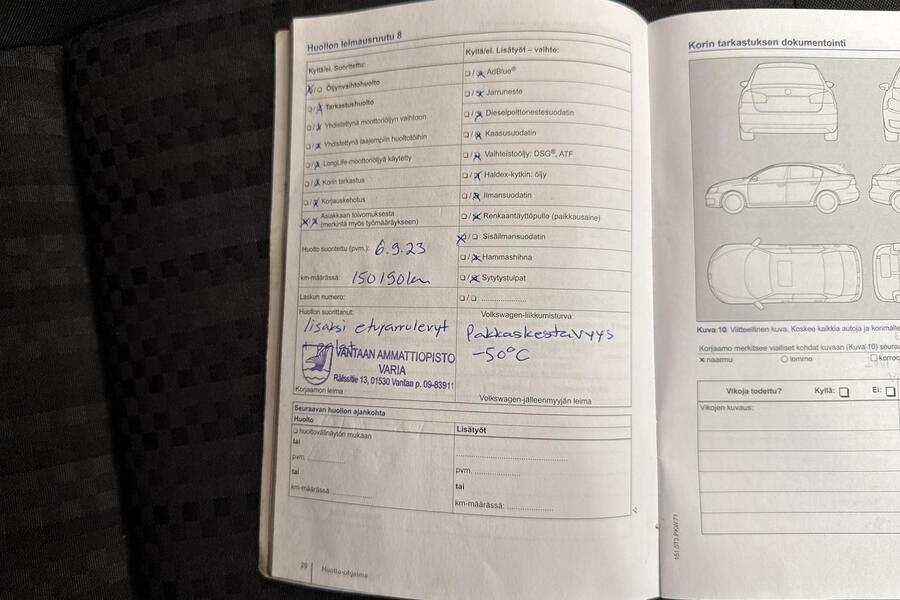 Huollon leimausruutu 8
Kyllä/ei. Suoritettu:
X/❏ Öljynvaihtohuolto
❏/X Tarkastushuolto
❏/X Yhdistettynä moottoriöljyn vaihtoon
❏/X Yhdistettynä laajempiin huoltotöihin
❏/X LongLife-moottoriöljyä käytetty
❏/X Korin tarkastus
❏/X Korjauskehotus
X/X Asiakkaan toivomuksesta
(merkintä myös työmääräykseen)
Huolto suoritettu (pvm.): 6.9.23
km-määrässä: 150150km
Laskun numero:
Huollon suorittanut:
lisäksi etujarrulevyt
VANTAAN AMMATTIOPISTO
VARIA
Rälssitie 13, 01530 Vantaa p. 09-83911
Korjaamon leima
Kyllä/ei. Lisätyöt – vaihto:
❏/X AdBlue®
❏/X Jarruneste
❏/X Dieselpolttonestesuodatin
❏/X Kaasusuodatin
❏/X Vaihteistoöljy: DSG®, ATF
❏/X Haldex-kytkin: öljy
❏/X Ilmansuodatin
❏/X Renkaantäyttöpullo (paikkausaine)
X/❏ Sisäilmansuodatin
❏/X Hammashihna
❏/X Sytytystulpat
❏/❏ .....................
Volkswagen-liikkumisturva:
Pakkaskestävyys
-50°C
Volkswagen-jälleenmyyjän leima
Seuraavan huollon ajankohta
Huolto
❏ huoltovälinäytön mukaan
tai
pvm. ..............
tai
km-määrässä: ..............
Lisätyöt
..............
pvm. ..............
tai
km-määrässä: ..............
20 Huolto-ohjelma
Korin tarkastuksen dokumentointi
Kuva 10 Viitteellinen kuva. Koskee kaikkia autoja ja
Korjaamo merkitsee vialliset kohdat kuvaan (Kuva 10)
× naarmu ○ lommo ❏
Vikoja todettu? Kyllä: ❏ Ei: ❏
Vikojen kuvaus:
151.5T3.PKW.71